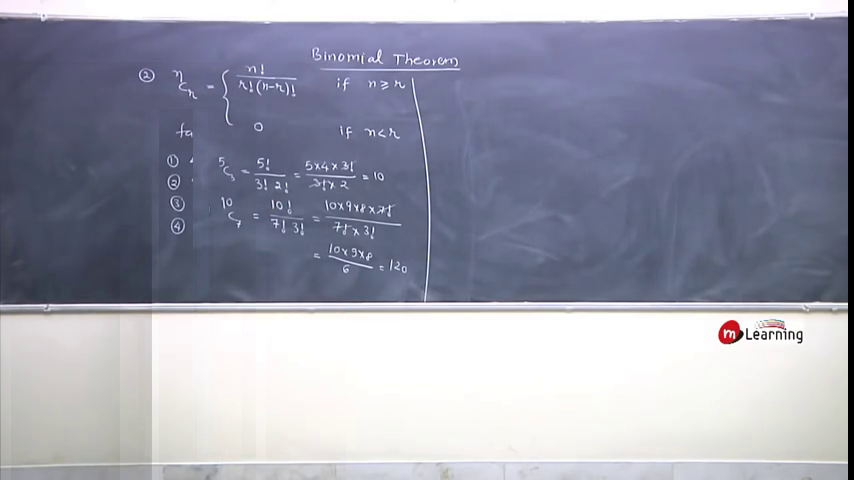 Binomial Theorem
② ⁿCᵣ = { n! / r!(n-r)! if n ≥ r
0 if n < r
①
② ⁵C₃ = 5! / 3! 2! = 5×4×3! / 3!×2 = 10
③ ¹⁰C₇ = 10! / 7! 3! = 10×9×8×7! / 7!×3!
④
= 10×9×8 / 6 = 120
m Learning